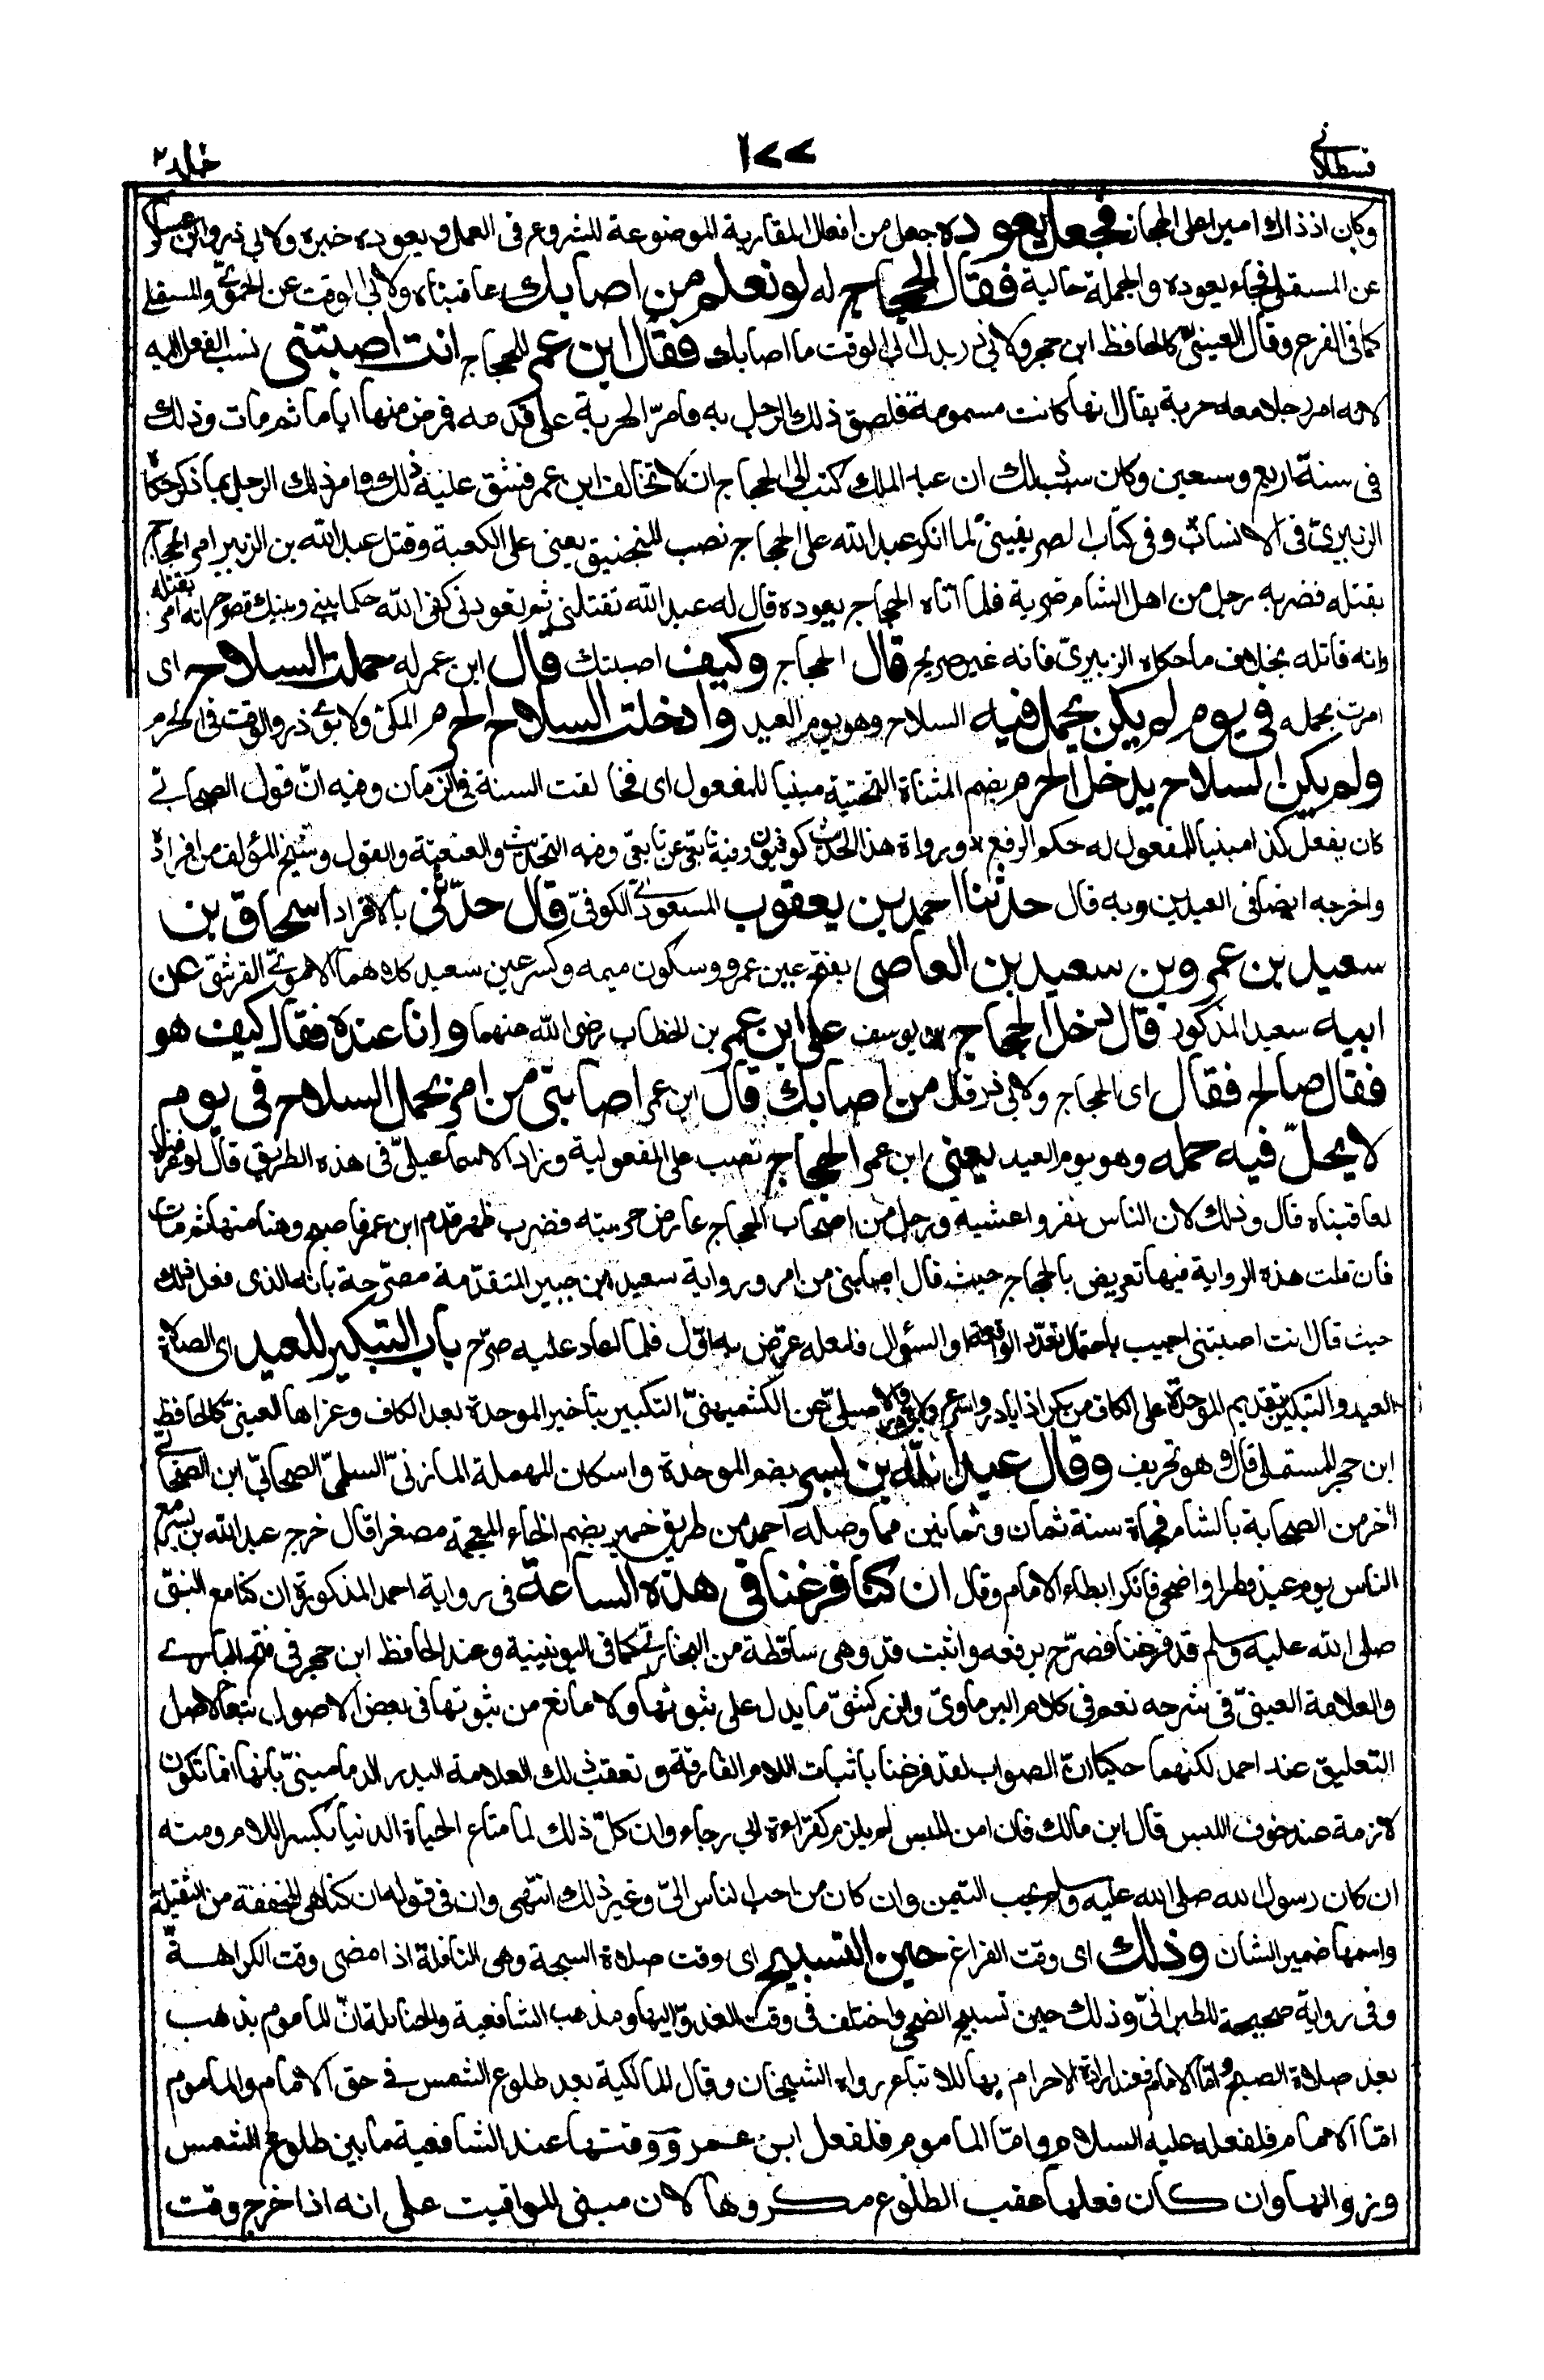 قسطلانی
١٧٧
جلد ٢
وكان اذ ذاك اميرا على الحجاز فجعل يعوده جعل من افعال المقاربة الموضوعة للشروع فى العمل ويعوده خبره ولابى ذر وابن عساكر
عن المستملى فجاء يعوده والجملة حالية فقال الحجاج له لو نعلم من اصابك عاقبناه ولابى الوقت عن الحموى والمستملى
كما فى الفرع وقال العينى كالحافظ ابن حجر ولابى ذر بدل ابى الوقت ما اصابك فقال ابن عمر للحجاج انت اصبتنى نسب الفعل اليه
لانه امر رجلا معه حربة يقال انها كانت مسمومة فلصق ذلك الرجل به فامرّ الحربة على قدمه فمرض منها اياما ثم مات وذلك
فى سنة اربع وسبعين وكان سبب ذلك ان عبد الملك كتب الى الحجاج ان لا تخالف ابن عمر فشق عليه ذلك وامر ذلك الرجل بما ذكر حكاه
الزبيرىّ فى الانساب وفى كتاب الصريفينىّ لما انكر عبد الله على الحجاج نصب المنجنيق يعنى على الكعبة وقتل عبد الله بن الزبير امر الحجاج
بقتله فضربه رجل من اهل الشام ضربة فلما اتاه الحجاج يعوده قال له عبد الله تقتلنى ثم تعودنى كفى الله حكما بينى وبينك فصرح انه امر بقتله
وانه قاتله بخلاف ما حكاه الزبيرىّ فانه غير صريح قال الحجاج وكيف اصبتك قال ابن عمر له حملت السلاح اى
امرت بحمله فى يوم لم يكن يحمل فيه السلاح وهو يوم العيد وادخلت السلاح الحرم المكى ولابوى ذر والوقت فى الحرم
ولم يكن السلاح يدخل الحرم بضم المثناة التحتية مبنيا للمفعول اى فخالفت السنة فى الزمان وفيه انّ قول الصحابىّ
كان يفعل كذا مبنيا للمفعول له حكم الرفع ورواة هذا الحديث كوفيون وفيه تابعى عن تابعى وفيه التحديث والعنعنة والقول وشيخ المؤلف من افراده
واخرجه ايضا فى العيدين وبه قال حدثنا احمد بن يعقوب المسعودىّ الكوفىّ قال حدّثنى بالافراد اسحاق بن
سعيد بن عمرو بن سعيد بن العاصى بفتح عين عمرو وسكون ميمه وكسر عين سعيد كلاهما الاموىّ القرشىّ عن
ابيه سعيد المذكور قال دخل الحجاج بن يوسف على ابن عمر بن الخطاب رضى الله عنهما وانا عنده فقال كيف هو
فقال صالح فقال اى الحجاج ولابى ذر قال من اصابك قال ابن عمر اصابنى من امر بحمل السلاح فى يوم
لا يحلّ فيه حمله وهو يوم العيد يعنى ابن عمر الحجاج نصب على المفعولية وزاد الاسماعيلىّ فى هذه الطريق قال لو عرفناه
لعاقبناه قال وذلك لان الناس نفروا عشية ورجل من اصحاب الحجاج عارض حربته فضرب ظهر قدم ابن عمر فاصبح وهنا منها ثم مات
فان قلت هذه الرواية فيها تعريض بالحجاج حيث قال اصابنى من امر ورواية سعيد ابن جبير المتقدّمة مصرّحة بانه الذى فعل ذلك
حيث قال انت اصبتنى اجيب باحتمال تعدّد الواقعة او السؤال فلعله عرّض به اوّل فلما اعاد عليه صرّح باب التبكير للعيد اى الصلاة
العيد والتبكير بتقديم الموحدة على الكاف من بكر اذا بادر واسرع ولابى ذر والاصيلىّ عن الكشميهنىّ التكبير بتأخير الموحدة بعد الكاف وعزاها العينىّ كالحافظ
ابن حجر للمستملى قال وهو تحريف وقال عبد الله بن بسر بضم الموحدة واسكان المهملة المازنىّ السلمىّ الصحابىّ ابن الصحابىّ
اٰخر من الصحابة بالشام فجاة سنة ثمان وثمانين مما وصله احمد من طريق خمير بضم الخاء المعجمة مصغرا قال خرج عبد الله بن بسر مع
الناس يوم عيد فطر او اضحى فانكر ابطاء الامام وقال ان كنا فرغنا فى هذه الساعة فى رواية احمد المذكورة ان كنا مع النبىّ
صلى الله عليه وسلم قد فرغنا فصرّح برفعه واثبت قد وهى ساقطة من البخارىّ كما فى اليونينية وعند الحافظ ابن حجر فى فتح البارى
والعلامة العينىّ فى شرحه نعم فى كلام البرماوىّ والزركشىّ ما يدل على ثبوتها ولا مانع من ثبوتها فى بعض الاصول تبعا لاصل
التعليق عند احمد لكنهما حكيا انّ الصواب لقد فرغنا باثبات اللام الفارقة وتعقب ذلك العلامة البدر الدمامينىّ بانها انما تكون
لازمة عند خوف اللبس قال ابن مالك فان امن اللبس لم يلزم كقراءة ابى رجاء وان كلّ ذلك لما متاع الحياة الدنيا بكسر اللام ومنه
ان كان رسول الله صلى الله عليه وسلم يحب التيمن وان كان من احب الناس الىّ وغير ذلك انتهى وان فى قوله ان كنا هى المخففة من الثقيلة
واسمها ضمير الشان وذلك اى وقت الفراغ حين التسبيح اى وقت صلاة السبحة وهى النافلة اذا مضى وقت الكراهـــة
وفى رواية صحيحة للطبرانىّ وذلك حين تسبيح الضحى واختلف فى وقت الغدوّ اليها ومذهب الشافعية والحنابلة انّ الماموم يذهب
بعد صلاة الصبح وامّا الامام فعند ارادة الاحرام بها للاتباع رواه الشيخان وقال المالكية بعد طلوع الشمس فى حق الامام والماموم
امّا الامام فلفعله عليه السلام وامّا الماموم فلفعل ابن عمر ووقتها عند الشافعية ما بين طلوع الشمس
وزوالها وان كان فعلها عقب الطلوع مكروها لان مبنى المواقيت على انه اذا خرج وقت